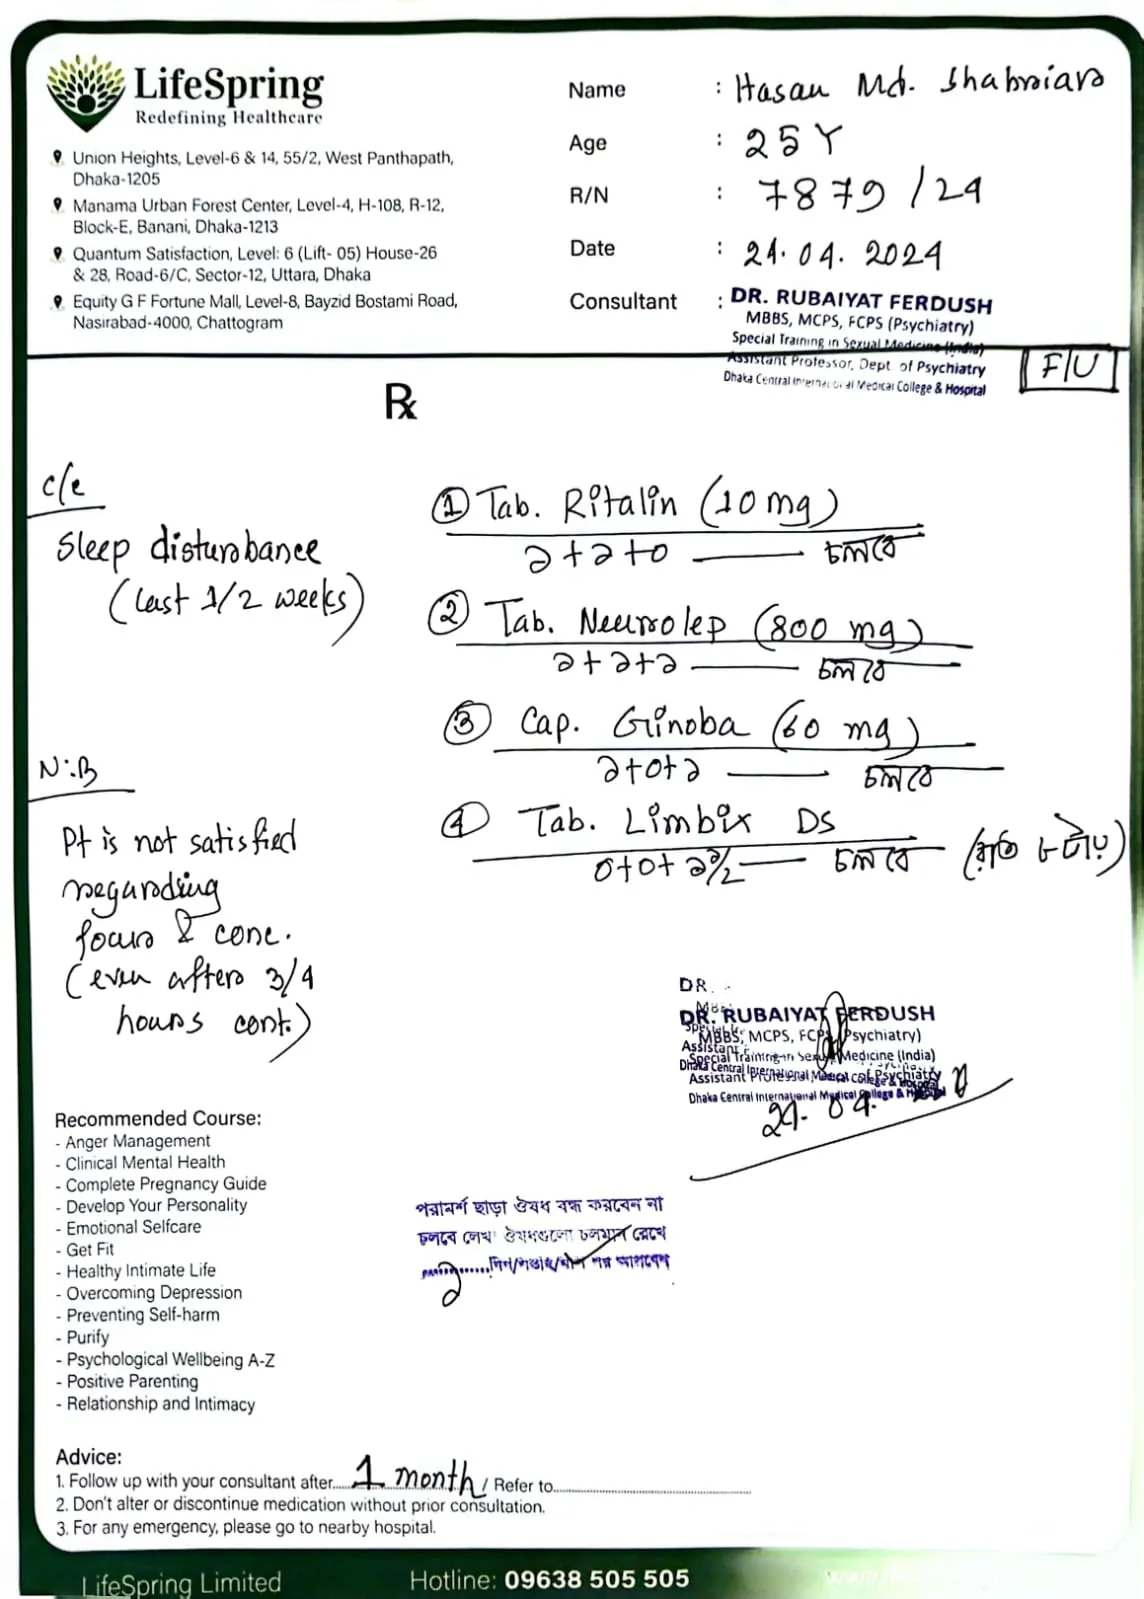 LifeSpring
Redefining Healthcare
Union Heights, Level-6 & 14, 55/2, West Panthapath,
Dhaka-1205
Manama Urban Forest Center, Level-4, H-108, R-12,
Block-E, Banani, Dhaka-1213
Quantum Satisfaction, Level: 6 (Lift- 05) House-26
& 28, Road-6/C, Sector-12, Uttara, Dhaka
Equity G F Fortune Mall, Level-8, Bayzid Bostami Road,
Nasirabad-4000, Chattogram
Name : Hasan Md. Shahriar
Age : 25 Y
R/N : 7879/24
Date : 24.04.2024
Consultant : DR. RUBAIYAT FERDUSH
MBBS, MCPS, FCPS (Psychiatry)
Special Training in Sexual Medicine (India)
Assistant Professor, Dept. of Psychiatry
Dhaka Central International Medical College & Hospital
F/U
Rx
c/c
Sleep disturbance
(last 1/2 weeks)
N:B
Pt is not satisfied
regarding
focus & conc.
(even after 3/4
hours cont.)
① Tab. Ritalin (10 mg)
১+১+০ — চলবে
② Tab. Neurolep (800 mg)
১+১+১ — চলবে
③ Cap. Ginoba (60 mg)
১+০+১ — চলবে
④ Tab. Limbix DS
০+০+১/২ — চলবে (রাত ৮টায়)
DR. RUBAIYAT FERDUSH
MBBS, MCPS, FCPS (Psychiatry)
Special Training in Sexual Medicine (India)
Assistant Professor, of Psychiatry
Dhaka Central International Medical College & Hospital
24.04.
পরামর্শ ছাড়া ঔষধ বন্ধ করবেন না
চলবে লেখা ঔষধগুলো চলমান রেখে
১ ............দিন/সপ্তাহ/মাস পর আসবেন
Recommended Course:
- Anger Management
- Clinical Mental Health
- Complete Pregnancy Guide
- Develop Your Personality
- Emotional Selfcare
- Get Fit
- Healthy Intimate Life
- Overcoming Depression
- Preventing Self-harm
- Purify
- Psychological Wellbeing A-Z
- Positive Parenting
- Relationship and Intimacy
Advice:
1. Follow up with your consultant after 1 month / Refer to
2. Don't alter or discontinue medication without prior consultation.
3. For any emergency, please go to nearby hospital.
LifeSpring Limited
Hotline: 09638 505 505